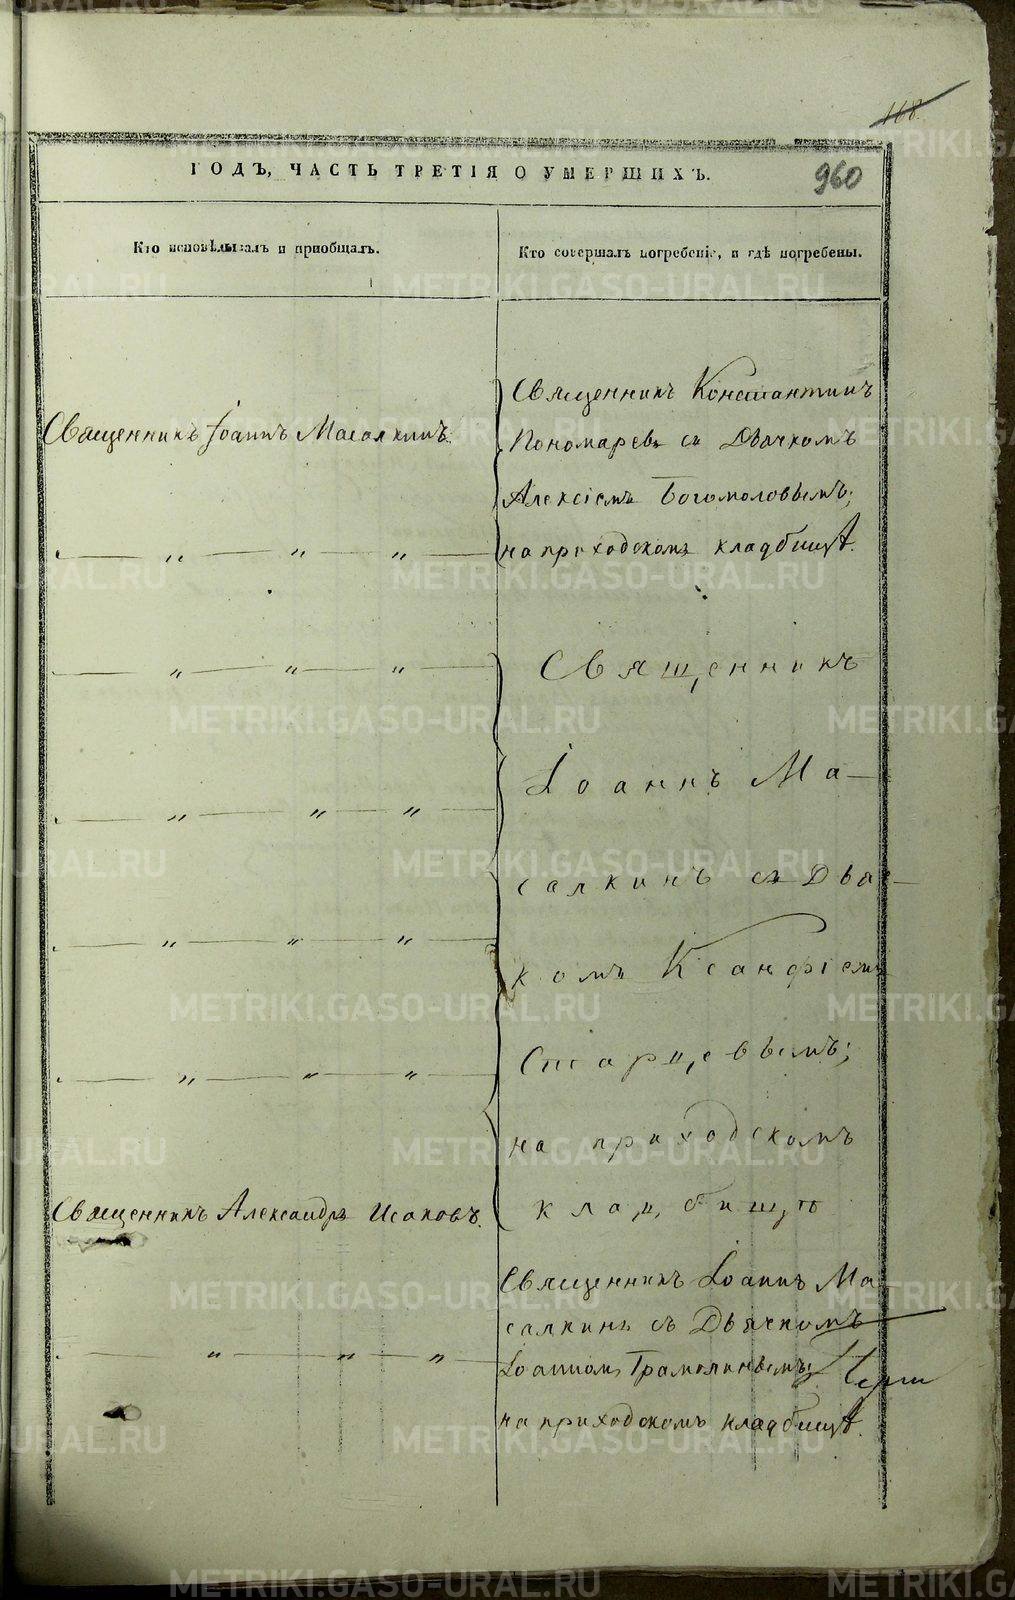 118.
960
ГОДЪ, ЧАСТЬ ТРЕТІЯ О УМЕРШИХЪ.
Кто исповѣдывалъ и пріобщалъ.
Кто совершалъ погребеніе, и гдѣ погребены.
Священникъ Іоаннъ Масалкинъ.
— „ — „ — „ —
— „ — „ — „ —
— „ — „ — „ —
— „ — „ — „ —
— „ — „ — „ —
Священникъ Александръ Исаковъ.
— „ — „ — „ —
Священникъ Константинъ
Пономаревъ съ Дьячкомъ
Алексіемъ Богомоловымъ;
на приходскомъ кладбищѣ.
Священникъ
Іоаннъ Ма-
салкинъ съ Дьяч-
комъ Ксанфіемъ
Старцевымъ;
на приходскомъ
кладбищѣ
Священникъ Іоаннъ Ма
салкинъ съ Дьячкомъ
Іоанномъ
на приходскомъ кладбищѣ.
METRIKI.GASO-URAL.RU